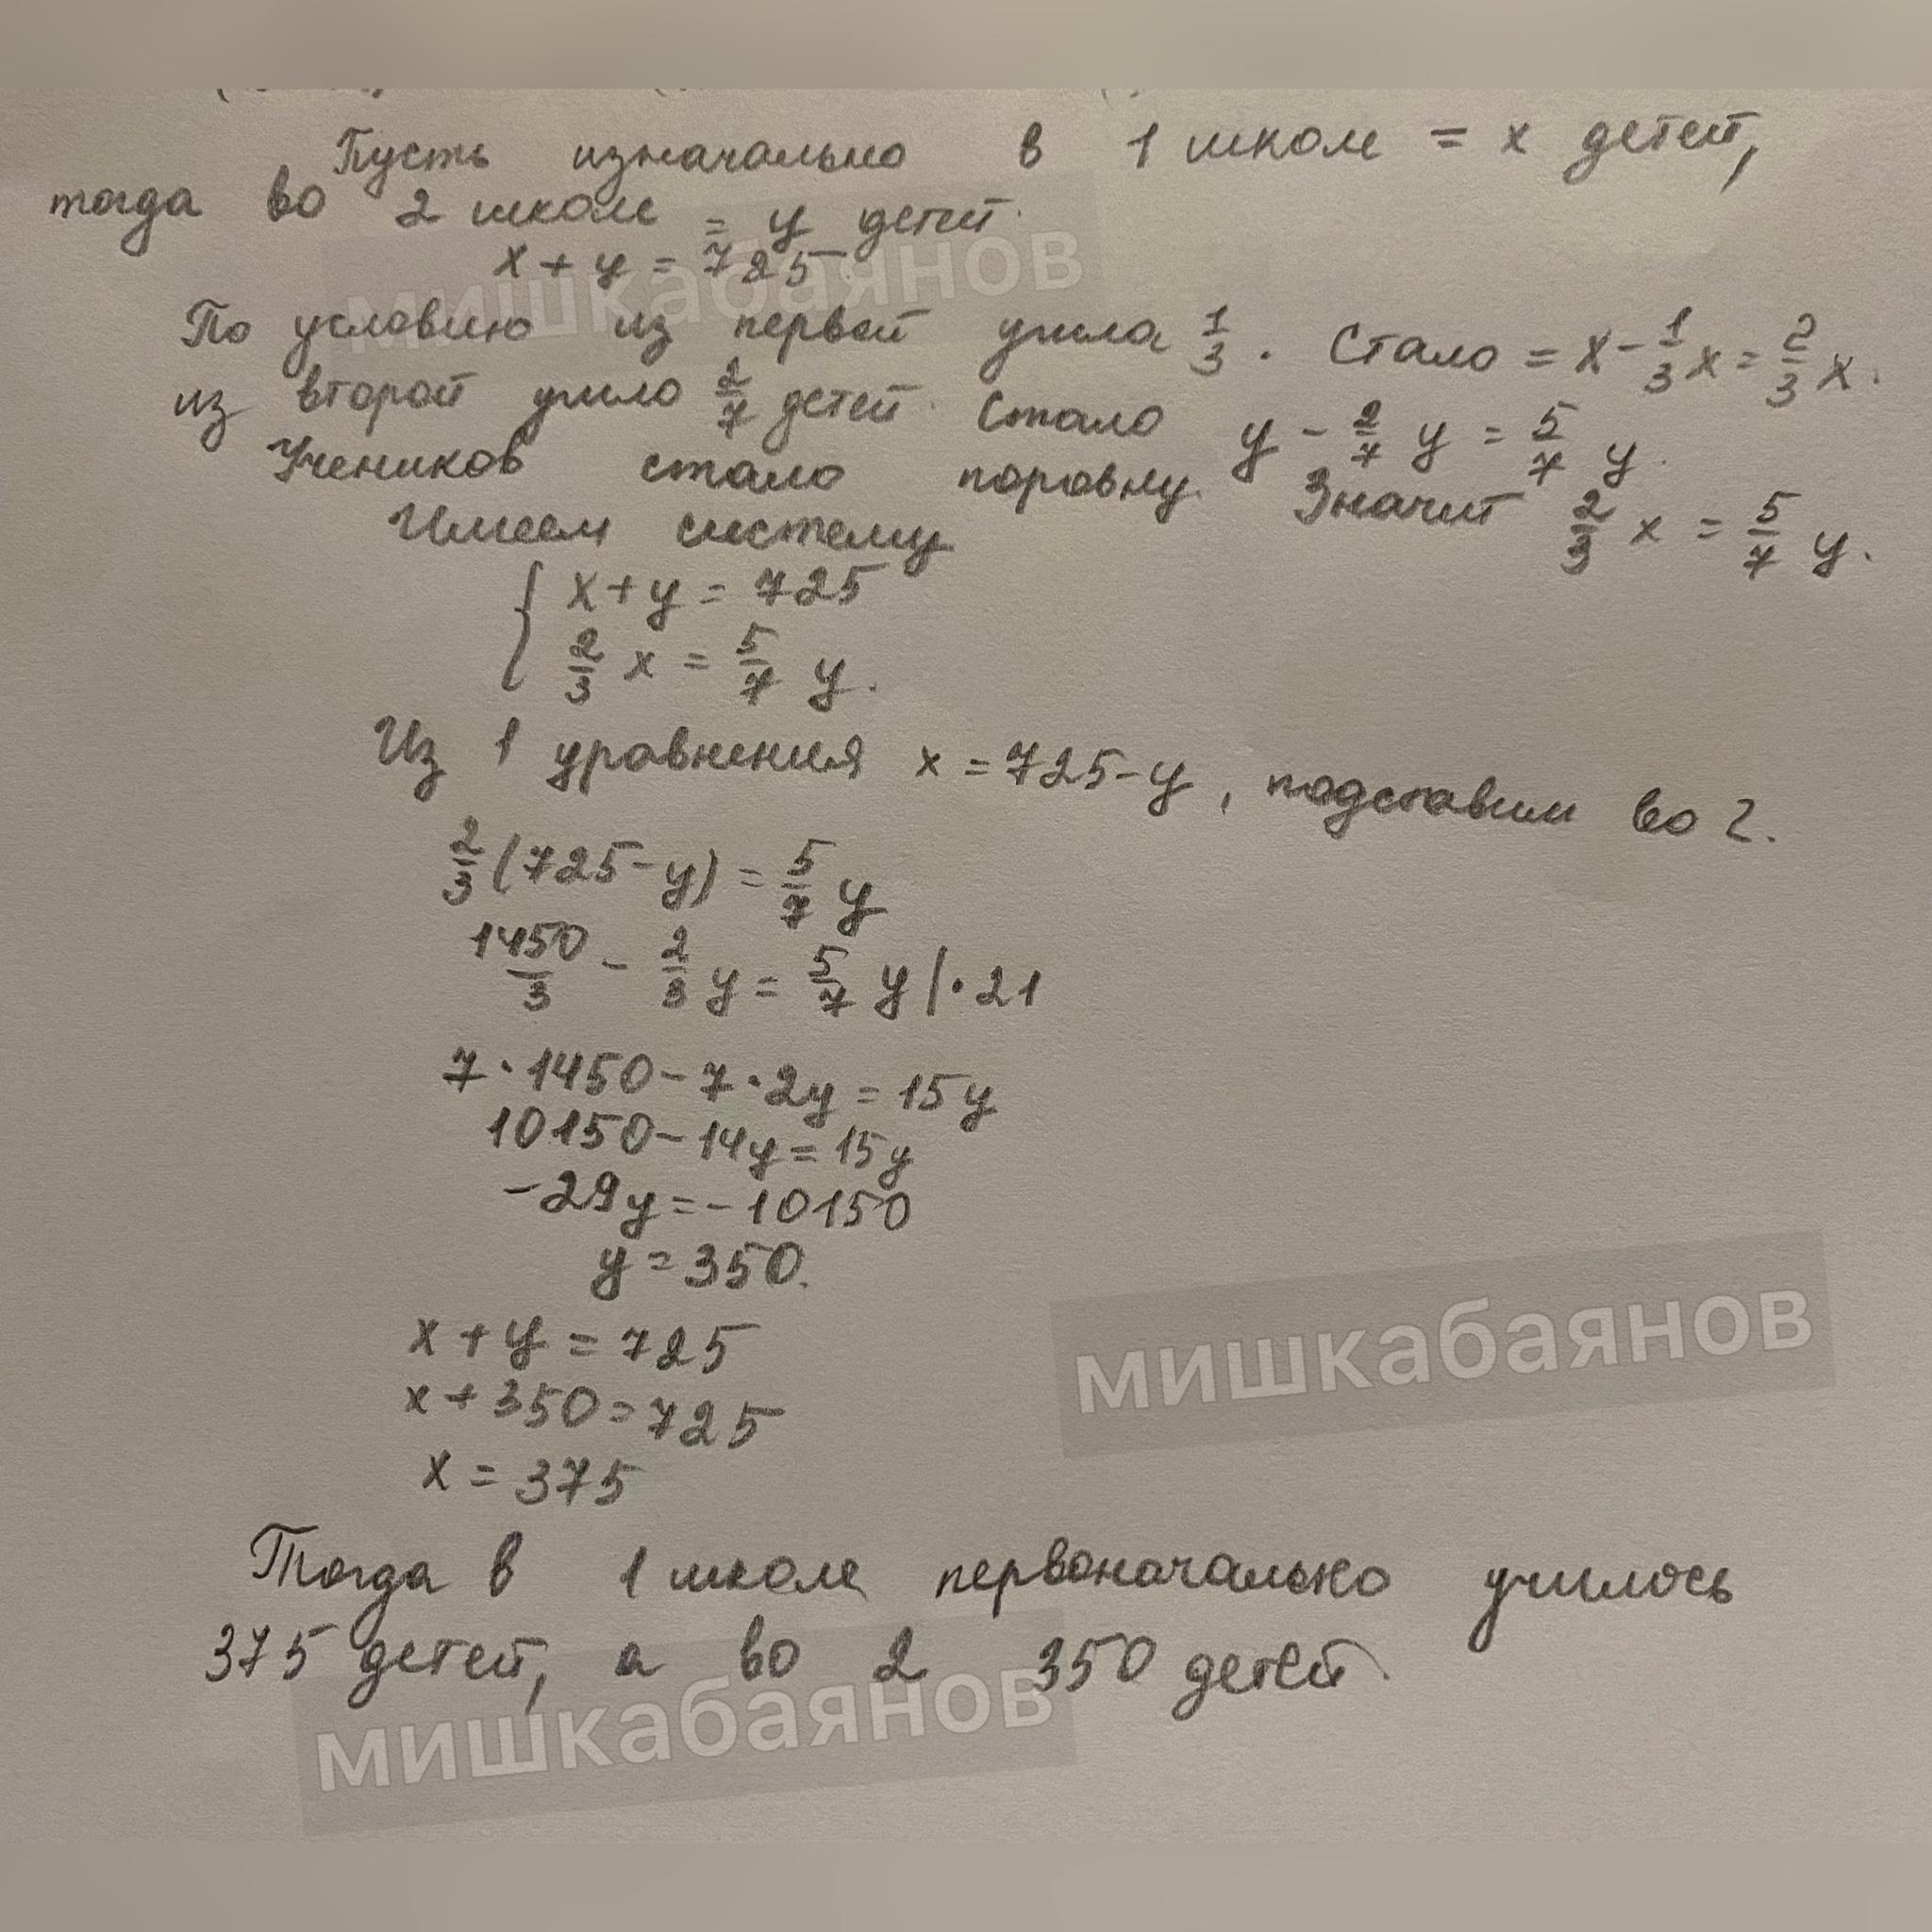 Пусть изначально в 1 школе = x детей,
тогда во 2 школе = y детей.
x + y = 725
По условию из первой ушла 1/3. Стало = x - 1/3 x = 2/3 x.
из второй ушло 2/7 детей. Стало y - 2/7 y = 5/7 y.
Учеников стало поровну. Значит 2/3 x = 5/7 y.
Имеем систему
{ x + y = 725
2/3 x = 5/7 y.
Из 1 уравнения x = 725 - y, подставим во 2.
2/3 (725 - y) = 5/7 y
1450/3 - 2/3 y = 5/7 y | · 21
7 · 1450 - 7 · 2y = 15y
10150 - 14y = 15y
-29y = -10150
y = 350.
x + y = 725
x + 350 = 725
x = 375
Тогда в 1 школе первоначально училось
375 детей, а во 2 350 детей.
мишкабаянов
мишкабаянов
мишкабаянов